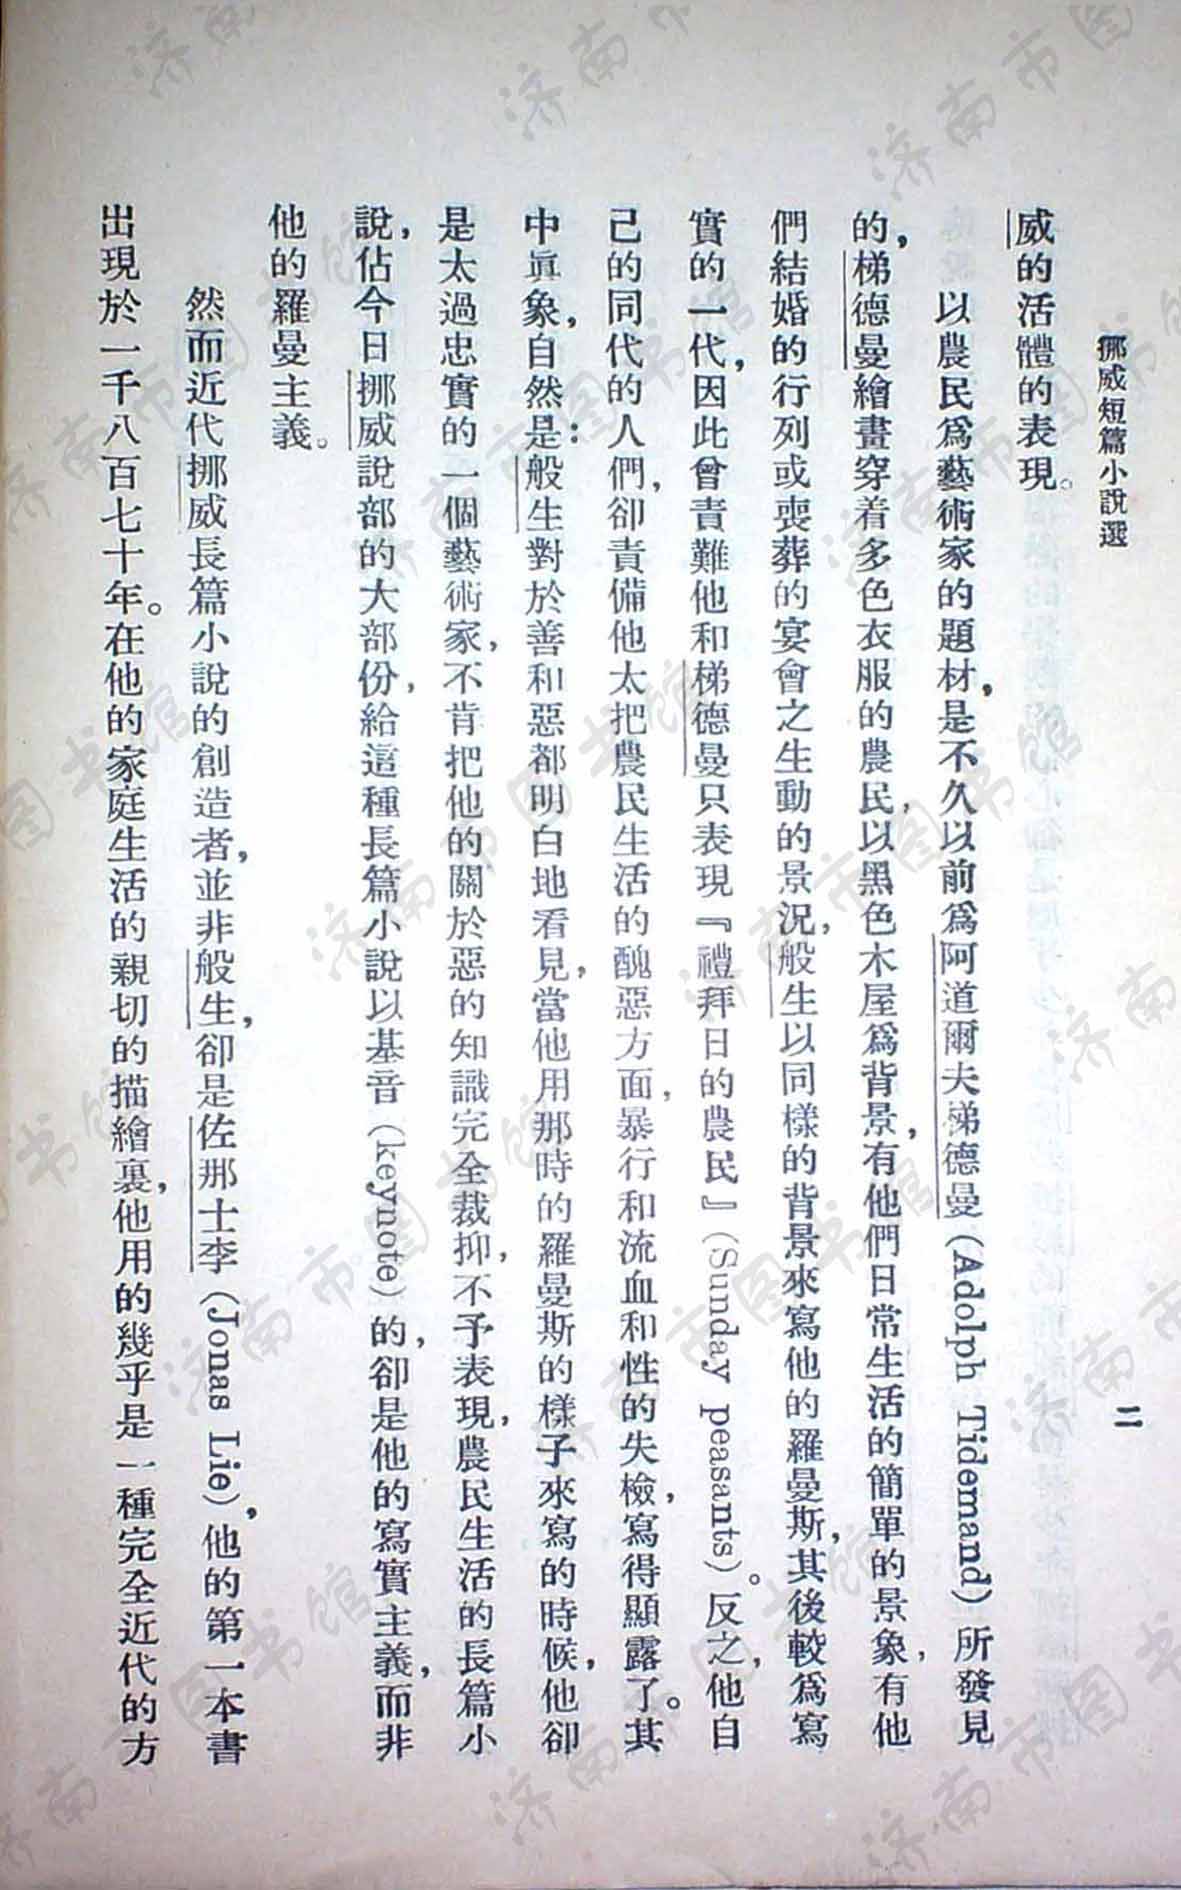 挪威短篇小說選
二
威的活體的表現。
以農民爲藝術家的題材，是不久以前爲阿道爾夫梯德曼（Adolph Tidemand）所發見
的，梯德曼繪畫穿着多色衣服的農民，以黑色木屋爲背景，有他們日常生活的簡單的景象，有他
們結婚的行列或喪葬的宴會之生動的景況，般生以同樣的背景來寫他的羅曼斯，其後較爲寫
實的一代，因此曾責難他和梯德曼只表現『禮拜日的農民』（Sunday peasants）。反之，他自
己的同代的人們，卻責備他太把農民生活的醜惡方面，暴行和流血和性的失檢，寫得顯露了。其
中眞象，自然是：般生對於善和惡都明白地看見，當他用那時的羅曼斯的樣子來寫的時候，他卻
是太過忠實的一個藝術家，不肯把他的關於惡的知識完全裁抑，不予表現，農民生活的長篇小
說，佔今日挪威說部的大部份，給這種長篇小說以基音（keynote）的，卻是他的寫實主義，而非
他的羅曼主義。
然而近代挪威長篇小說的創造者，並非般生，卻是佐那士李（Jonas Lie），他的第一本書
出現於一千八百七十年。在他的家庭生活的親切的描繪裏，他用的幾乎是一種完全近代的方
济南市图书馆